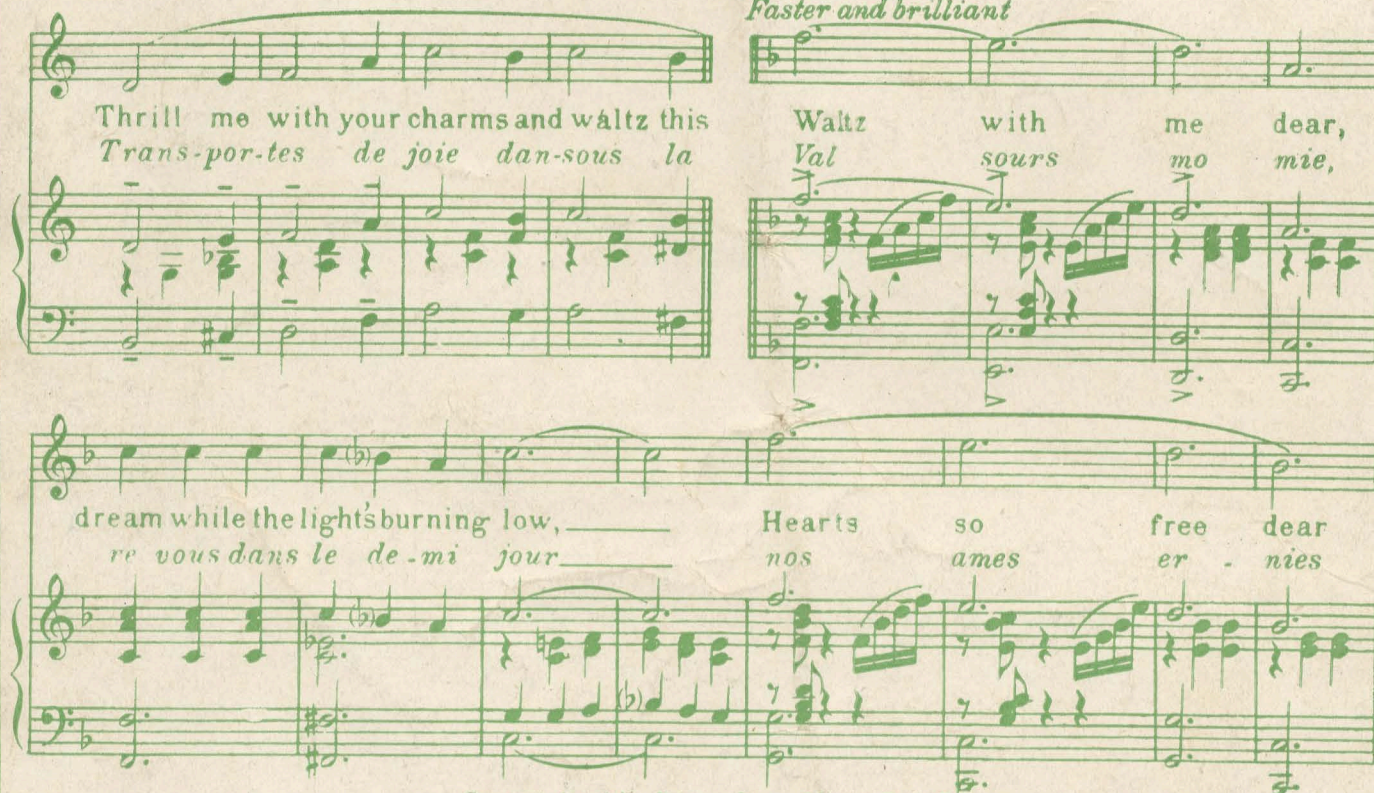 Faster and brilliant
Thrill me with your charms and waltz this Waltz with me dear,
Trans-por-tes de joie dan-sous la Val sours mo mie,
dream while the light's burning low, Hearts so free dear
re vous dans le de-mi jour nos ames er - nies